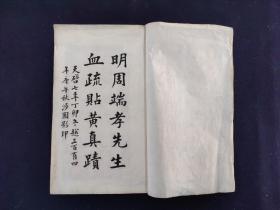 明周端孝先生
血疏貼黃真蹟
天啓七年丁卯冬越三百有四
年庚午秋涉園影印